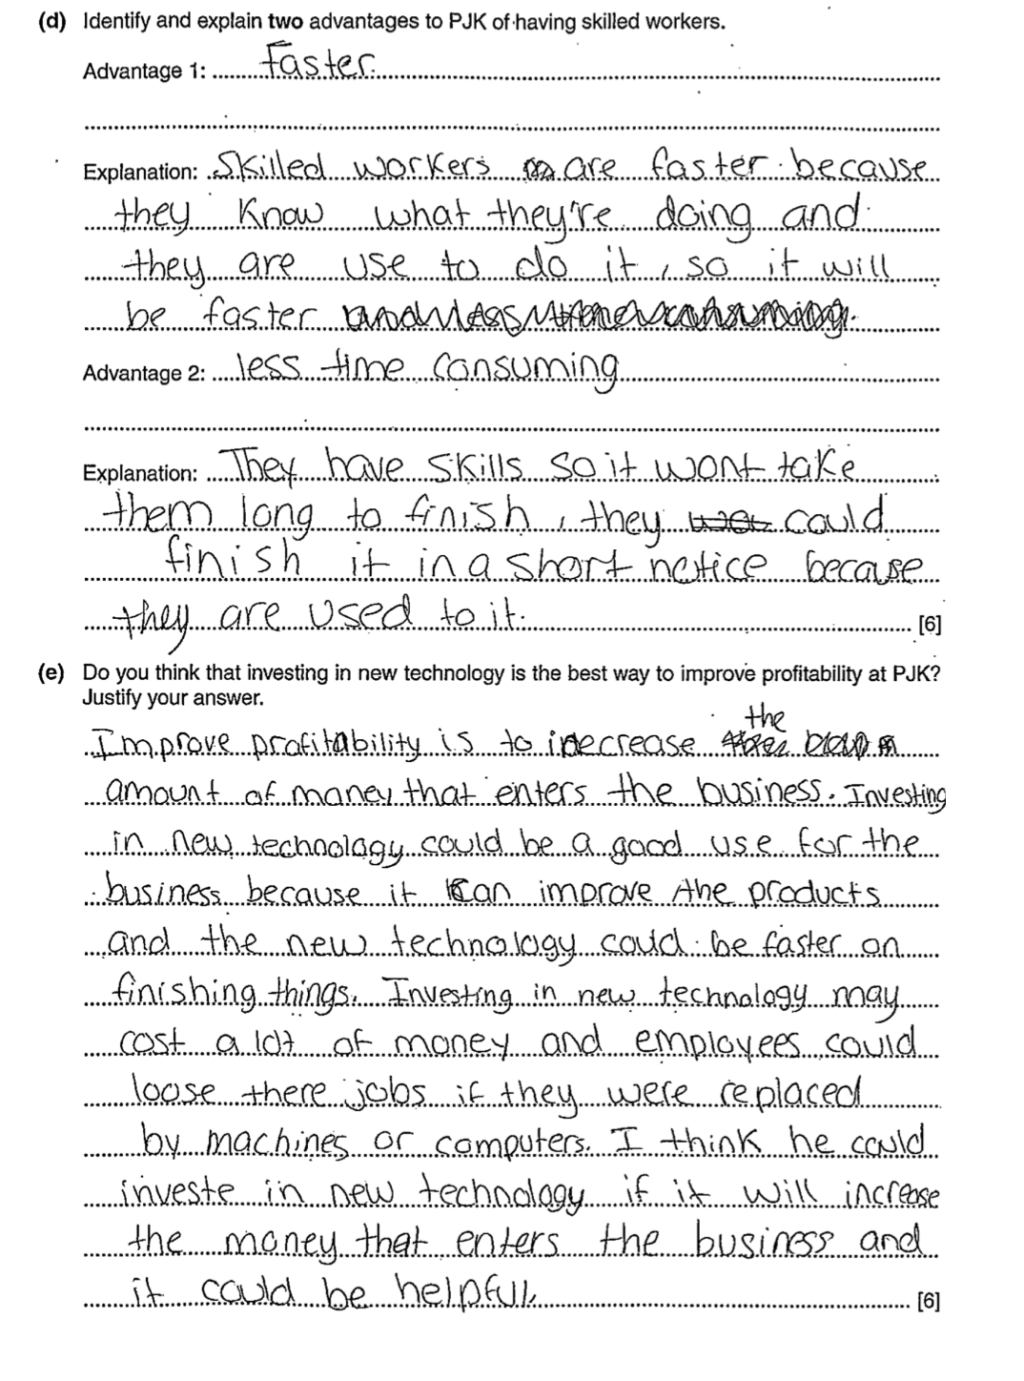 (d) Identify and explain two advantages to PJK of having skilled workers.
Advantage 1: Faster.
Explanation: Skilled workers are faster because
they know what they're doing and
they are use to do it, so it will
be faster
Advantage 2: less time consuming
Explanation: They have skills so it wont take
them long to finish, they could
finish it in a short notice because
they are used to it. [6]
(e) Do you think that investing in new technology is the best way to improve profitability at PJK?
Justify your answer.
the
Improve profitability is to increase
amount of money that enters the business. Investing
in new technology could be a good use for the
business because it can improve the products
and the new technology could be faster on
finishing things. Investing in new technology may
cost a lot of money and employees could
loose there jobs if they were replaced
by machines or computers. I think he could
investe in new technology if it will increase
the money that enters the business and
it could be helpful. [6]